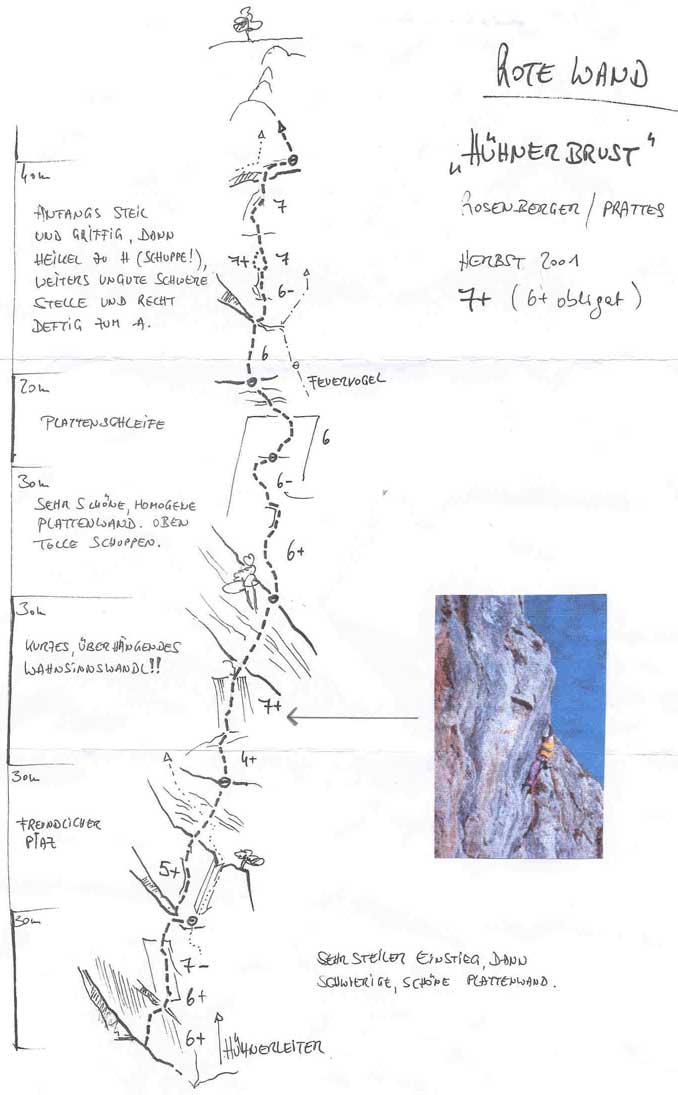 ROTE WAND
„HÜHNERBRUST“
ROSENBERGER / PRATTES
HERBST 2001
7+ (6+ obligat)
40m
ANFANGS STEIL
UND GRIFFIG, DANN
HEIKEL ZU H (SCHUPPE!),
WEITERS UNGUTE SCHWERE
STELLE UND RECHT
DEFTIG ZUM A.
7
7+
7
6-
6
FEUERVOGEL
20m
PLATTENSCHLEIFE
6
6-
30m
SEHR SCHÖNE, HOMOGENE
PLATTENWAND. OBEN
TOLLE SCHUPPEN.
6+
30m
KURZES, ÜBERHÄNGENDES
WAHNSINNSWANDL!!
7+
4+
30m
FREUNDLICHER
5+
30m
7-
6+
6+
SEHR STEILER EINSTIEG, DANN
SCHWIERIGE, SCHÖNE PLATTENWAND.
HÜHNERLEITER